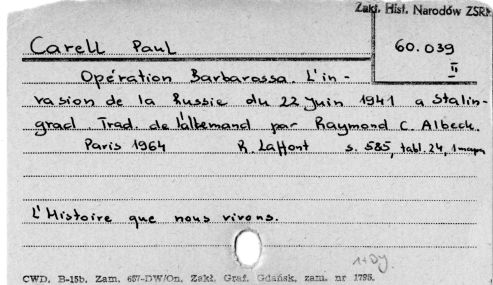 Zakł. Hist. Narodów ZSRR
Carell Paul
60.039
II
Opération Barbarossa. L'in-
vasion de la Russie du 22 juin 1941 a Stalin-
grad Trad. de l'allemand par Raymond C. Albeck.
Paris 1964 R. Laffont s. 585, tabl. 24, 1 mapa
L'Histoire que nous vivons.
CWD. B-15b. Zam. 657-DW/On. Zakł. Graf. Gdańsk, zam. nr 1795.